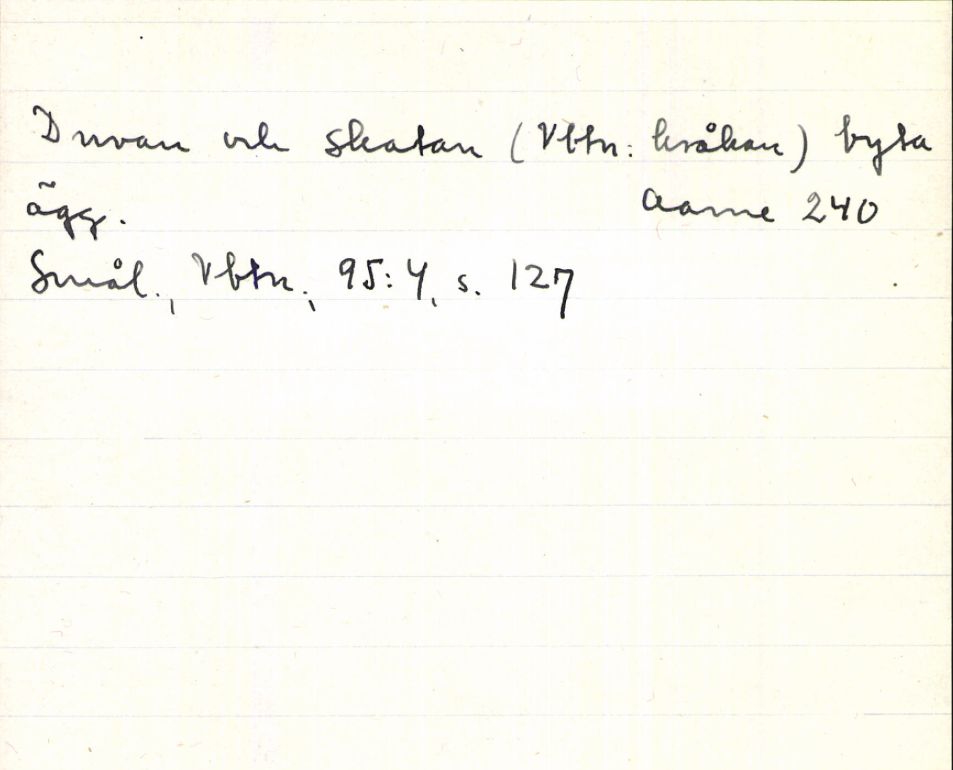 Duvan och skatan (Vbtn: kråkan) byta
ägg. Aarne 240
Smål., Vbtn., 95:4, s. 127